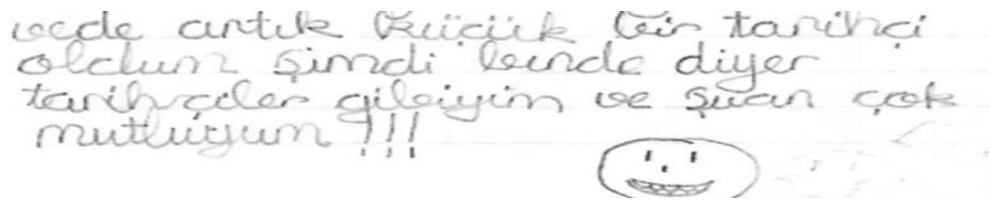 vede artık küçük bir tarihçi
oldum şimdi bende diyer
tarihçiler gibiyim ve şuan çok
mutluyum !!!